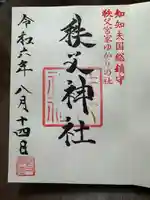 知知夫国総鎮守
秩父宮家ゆかりの社
秩父神社
令和六年八月十四日